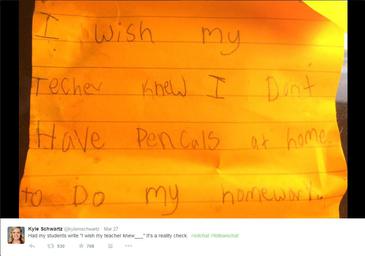 I wish my
Techer knew I Dont
Have Pencals at home
to Do my homework.
Kyle Schwartz @kylemschwartz · Mar 27
Had my students write "I wish my teacher knew___" It's a reality check.
530 768